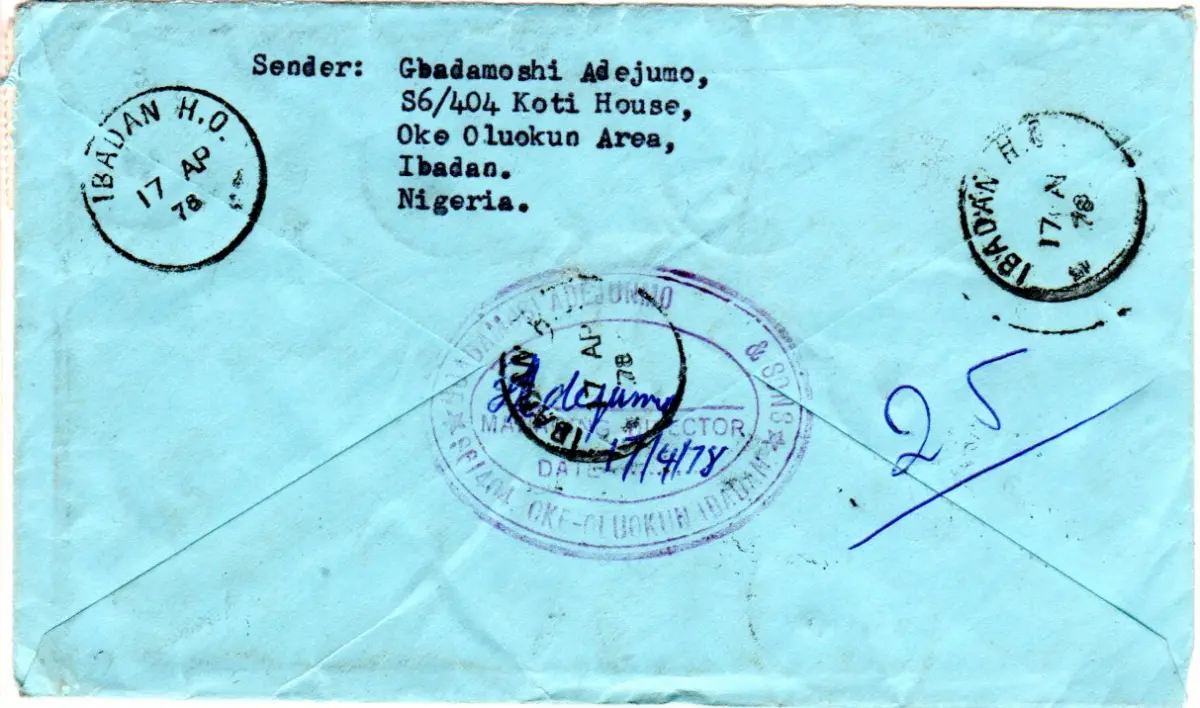 Sender: Gbadamoshi Adejumo,
S6/404 Koti House,
Oke Oluokun Area,
Ibadan.
Nigeria.
IBADAN H.O.
17 AP
78
IBADAN H.O
17
78
ADEJUNMO
& SONS
Adejumo
MANAGING DIRECTOR
DATE 17/4/78
OKE-OLUOKUN IBADAN
IBADAN H.O.
17 AP
78
25